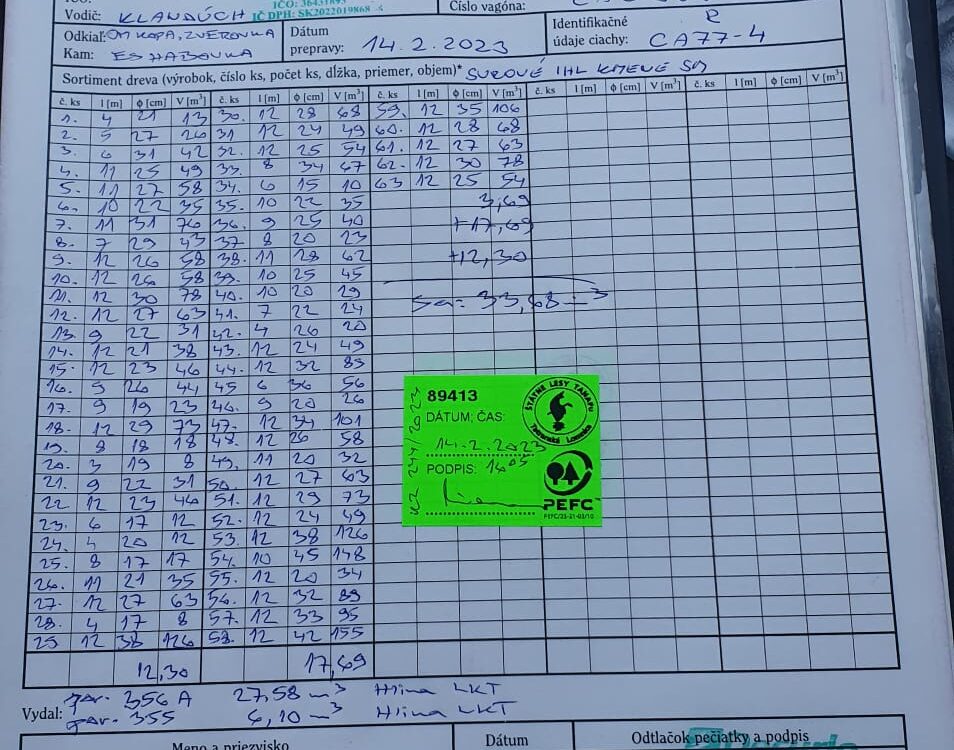 IČO: 36431893
Vodič: KLANDÚCH IČ DPH: SK2022019868
Číslo vagóna:
Odkiaľ: OM KOPA, ZVEROVKA
Dátum prepravy: 14.2.2023
Identifikačné údaje ciachy: CA77-4 R
Kam: ES HABOVKA
Sortiment dreva (výrobok, číslo ks, počet ks, dĺžka, priemer, objem)* SUROVÉ IHL KMENE SM
č. ks l [m] ϕ [cm] V [m³] č. ks l [m] ϕ [cm] V [m³] č. ks l [m] ϕ [cm] V [m³] č. ks l [m] ϕ [cm] V [m³] č. ks l [m] ϕ [cm] V [m³]
1. 4 21 13 30. 12 28 68 59. 12 35 106
2. 5 27 26 31 12 24 49 60. 12 28 68
3. 6 31 42 32. 12 25 54 61. 12 27 63
4. 11 25 49 33. 8 34 67 62. 12 30 78
5. 11 27 58 34. 6 15 10 63 12 25 54
6. 10 22 35 35. 10 22 35 3,69
7. 11 31 76 36. 9 25 40 +17,69
8. 7 29 43 37 8 20 23
9. 12 26 58 38. 11 28 62 +12,30
10. 12 26 58 39. 10 25 45
11. 12 30 78 40. 10 20 29 Sa = 33,68 m³
12. 12 27 63 41. 7 22 24
13. 9 22 31 42. 4 26 20
14. 12 21 38 43. 12 24 49
15. 12 23 46 44. 12 32 89
16. 9 26 44 45 6 36 56
17. 9 19 23 46. 9 20 26
18. 12 29 73 47. 12 34 101
19. 8 18 18 48. 12 26 58
20. 3 19 8 49. 11 20 32
21. 9 22 31 50. 12 27 63
22 12 23 46 51. 12 29 73
23. 6 17 12 52. 12 24 49
24. 4 20 12 53. 12 38 126
25. 8 17 17 54. 10 45 148
26. 11 21 35 55. 12 20 34
27. 12 27 63 56. 12 32 89
28. 4 17 8 57. 12 33 95
29 12 38 126 58. 12 42 155
12,30 17,69
89413
DÁTUM; ČAS:
14.2.2023
PODPIS: 14⁰⁵
244/2023
ŠTÁTNE LESY TANAPu
Tatranská Lomnica
PEFC
Vydal: 356 A 27,58 m³ Hlina LKT
355 6,10 m³ Hlina LKT
Meno a priezvisko
Dátum
Odtlačok pečiatky a podpis